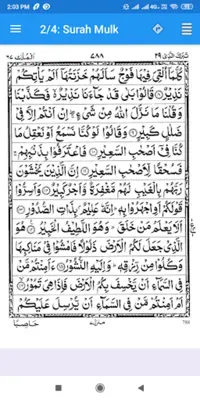 2:03 PM
2/4: Surah Mulk
تبٰرك الذی ٢٩
٧٨٩
الملك ٦٧
كُلَّمَآ اُلْقِیَ فِیْهَا فَوْجٌ سَاَلَهُمْ خَزَنَتُهَآ اَلَمْ یَاْتِكُمْ
نَذِیْرٌ ۝٨ قَالُوْا بَلٰی قَدْ جَآءَنَا نَذِیْرٌ ۙ فَكَذَّبْنَا
وَقُلْنَا مَا نَزَّلَ اللّٰهُ مِنْ شَیْءٍ ۖ اِنْ اَنْتُمْ اِلَّا فِیْ
ضَلٰلٍ كَبِیْرٍ ۝٩ وَقَالُوْا لَوْ كُنَّا نَسْمَعُ اَوْ نَعْقِلُ مَا
كُنَّا فِیْٓ اَصْحٰبِ السَّعِیْرِ ۝١٠ فَاعْتَرَفُوْا بِذَنْۢبِهِمْ ۚ
فَسُحْقًا لِّاَصْحٰبِ السَّعِیْرِ ۝١١ اِنَّ الَّذِیْنَ یَخْشَوْنَ
رَبَّهُمْ بِالْغَیْبِ لَهُمْ مَّغْفِرَةٌ وَّاَجْرٌ كَبِیْرٌ ۝١٢ وَاَسِرُّوْا
قَوْلَكُمْ اَوِ اجْهَرُوْا بِهٖ ؕ اِنَّهٗ عَلِیْمٌۢ بِذَاتِ الصُّدُوْرِ ۝١٣
اَلَا یَعْلَمُ مَنْ خَلَقَ ؕ وَهُوَ اللَّطِیْفُ الْخَبِیْرُ ۝١٤ هُوَ
الَّذِیْ جَعَلَ لَكُمُ الْاَرْضَ ذَلُوْلًا فَامْشُوْا فِیْ مَنَاكِبِهَا
وَكُلُوْا مِنْ رِّزْقِهٖ ؕ وَاِلَیْهِ النُّشُوْرُ ۝١٥ ءَاَمِنْتُمْ مَّنْ
فِی السَّمَآءِ اَنْ یَّخْسِفَ بِكُمُ الْاَرْضَ فَاِذَا هِیَ تَمُوْرُ ۝١٦
اَمْ اَمِنْتُمْ مَّنْ فِی السَّمَآءِ اَنْ یُّرْسِلَ عَلَیْكُمْ
حَاصِبًا
منزل
789